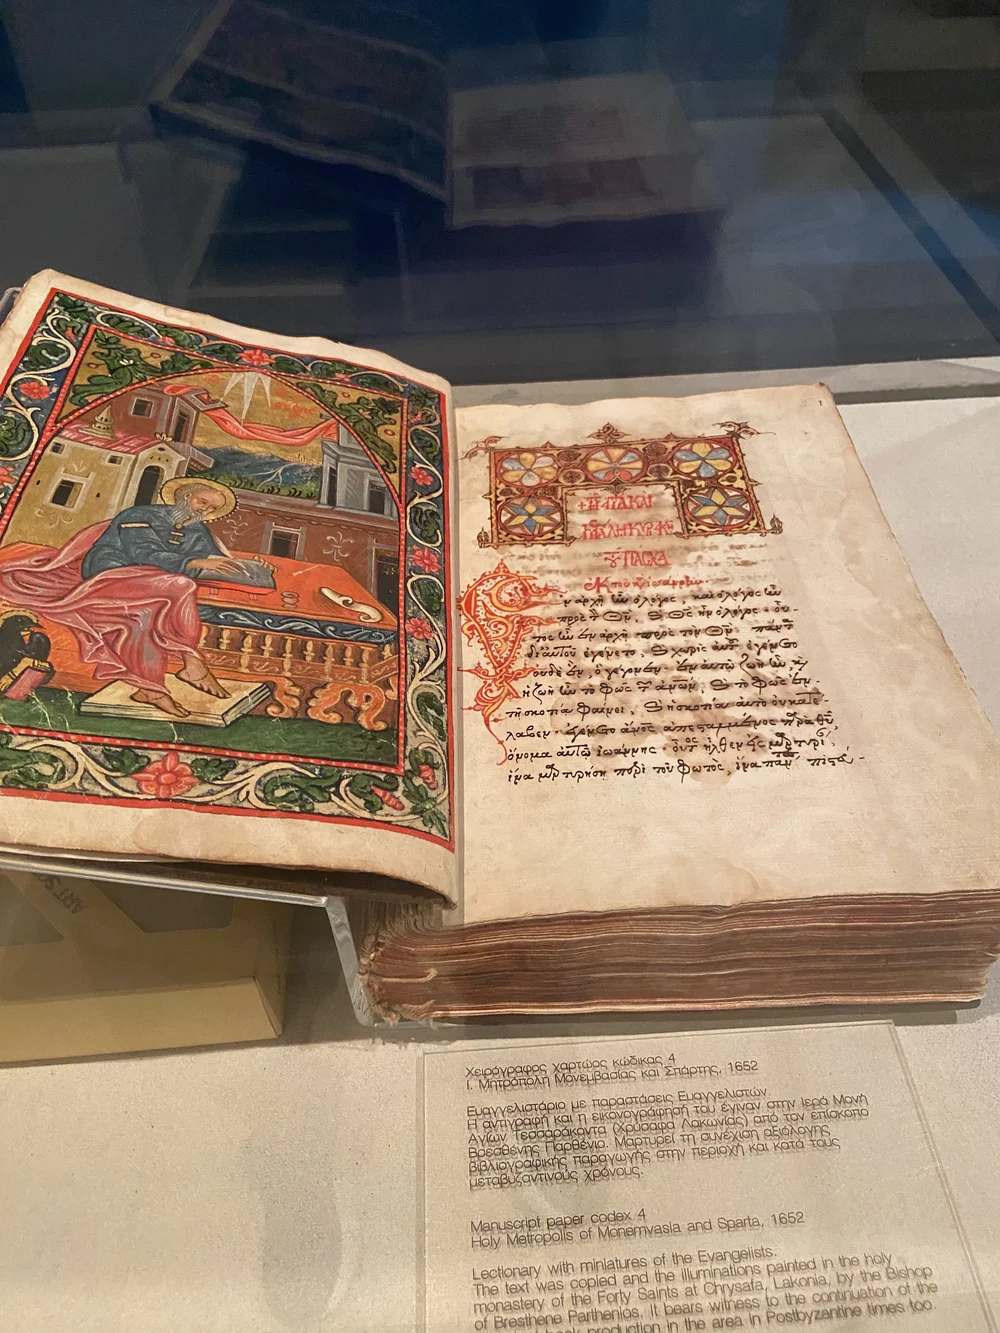 1
+ΤΗ ἉΓΙΑ ΚΑΙ
ΚΥΡΙΑΚΗ
ΠΑΣΧΑ
ἐκ τοῦ
ἐν ἀρχῇ ὦν ὁ λόγος, καὶ ὁ λόγος ὦν
πρὸς τ Θν, καὶ Θς ἦν ὁ λόγος· οὗ-
τος ὦν ἐν ἀρχῇ πρὸς τὸν Θν, πάντ
δι αὐτοῦ ἐγένετο, καὶ χωρὶς αὐτ ἐγένετο
οὐδὲ ἕν, ὃ γέγονεν· ἐν αὐτῷ ζωὴ ὦν, καὶ
ἡ ζωὴ ὦν τὸ φῶς τ ἀνων, καὶ τὸ φῶς ἐν
τῇ σκοτία φαίνει, καὶ ἡ σκοτία αὐτὸ οὐ κατέ-
λαβεν· ἐγένετο ἄνος ἀπεσταλμένος παρὰ θυ,
ὄνομα αὐτῷ ἰωάννης· οὗτ ἦλθεν εἰς μαρτυρί,
ἵνα μαρτυρήσῃ περὶ τοῦ φωτός, ἵνα πάν πιστ-
ART
Χειρόγραφος χαρτώος κώδικας 4
Ι. Μητρόπολη Μονεμβασίας και Σπάρτης, 1652
Ευαγγελιστάριο με παραστάσεις Ευαγγελιστών.
Η αντιγραφή και η εικονογράφησή του έγιναν στην Ιερά Μονή
Αγίων Τεσσαράκοντα (Χρύσαφα Λακωνίας) από τον επίσκοπο
Βρεσθένης Παρθένιο. Μαρτυρεί τη συνέχιση αξιόλογης
βιβλιογραφικής παραγωγής στην περιοχή και κατά τους
μεταβυζαντινούς χρόνους.
Manuscript paper codex 4
Holy Metropolis of Monemvasia and Sparta, 1652
Lectionary with miniatures of the Evangelists.
The text was copied and the illuminations painted in the holy
monastery of the Forty Saints at Chrysafa, Lakonia, by the Bishop
of Bresthene Parthenios. It bears witness to the continuation of the
book production in the area in Postbyzantine times too.